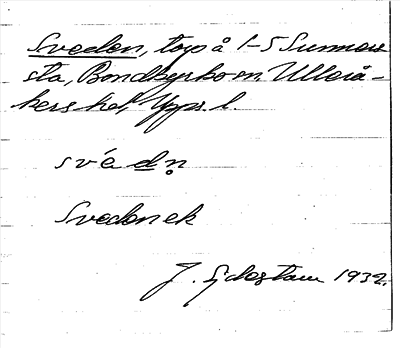 Sveden, torp å 1-5 Sunner
sta, Bondkyrko sn. Ullerå-
kers hd, Upps. l.
svédn̥
Svedenek
J. Sjdestam 1932.